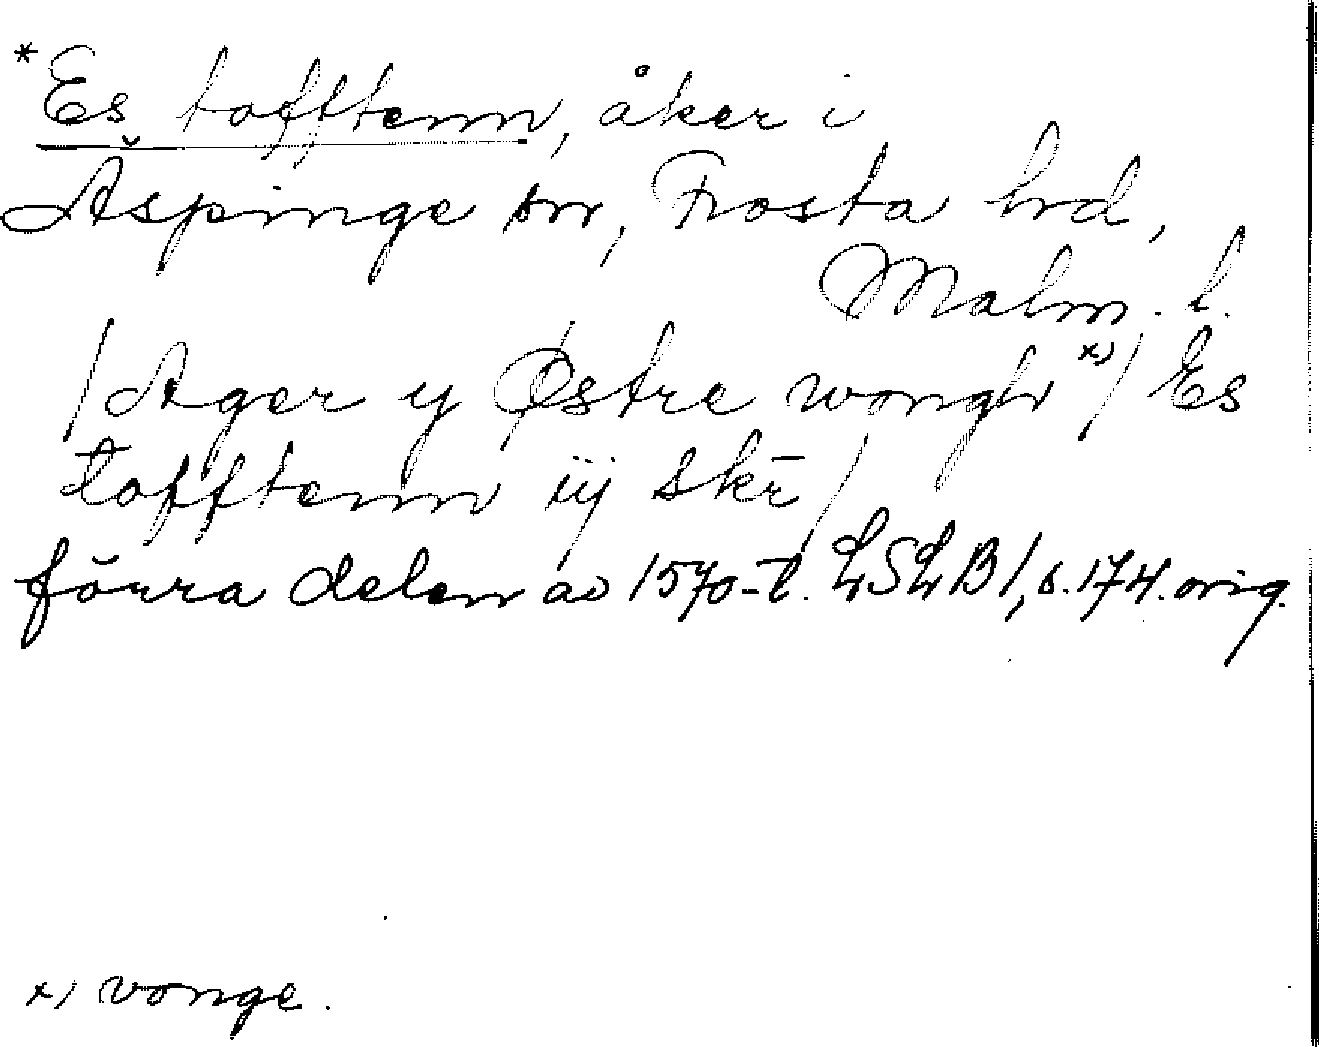 *Es tofftenn, åker i
Äspinge sn, Frosta hrd,
Malm. l.
/Ager y Østre wongh x)/ Es
tofftenn iij skē/
förra delen av 1570-t. LSLB1, s. 174. orig.
x) vonge.